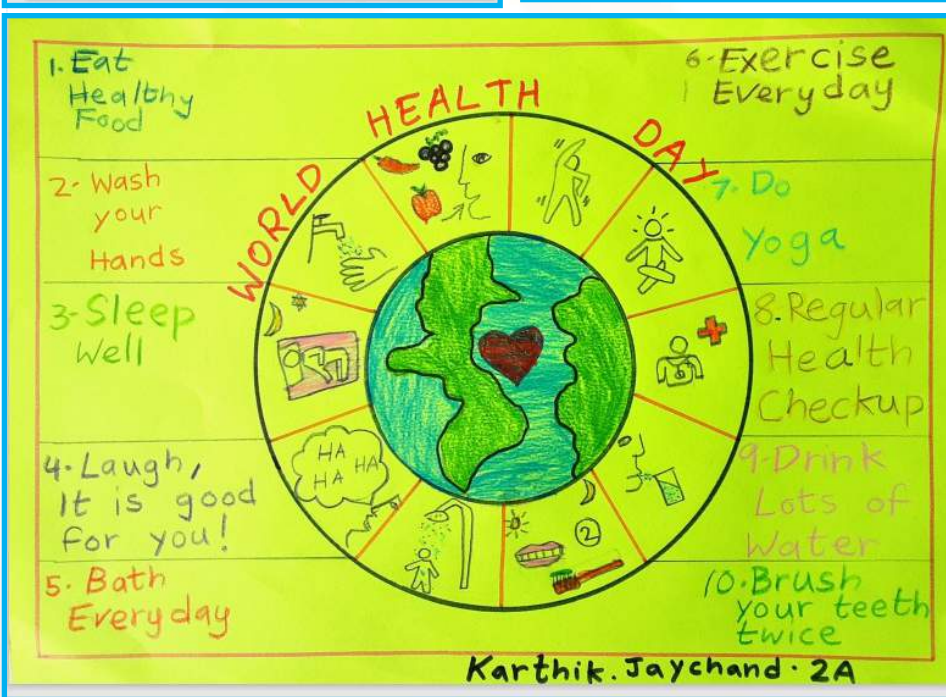 WORLD HEALTH DAY
1. Eat
Healthy
Food
2- Wash
your
Hands
3-Sleep
Well
4. Laugh,
It is good
for you!
5. Bath
Everyday
6-Exercise
Everyday
7- Do
Yoga
8. Regular
Health
Checkup
9-Drink
Lots of
Water
10. Brush
your teeth
twice
HA
HA HA
HA
2
Karthik. Jaychand. 2A